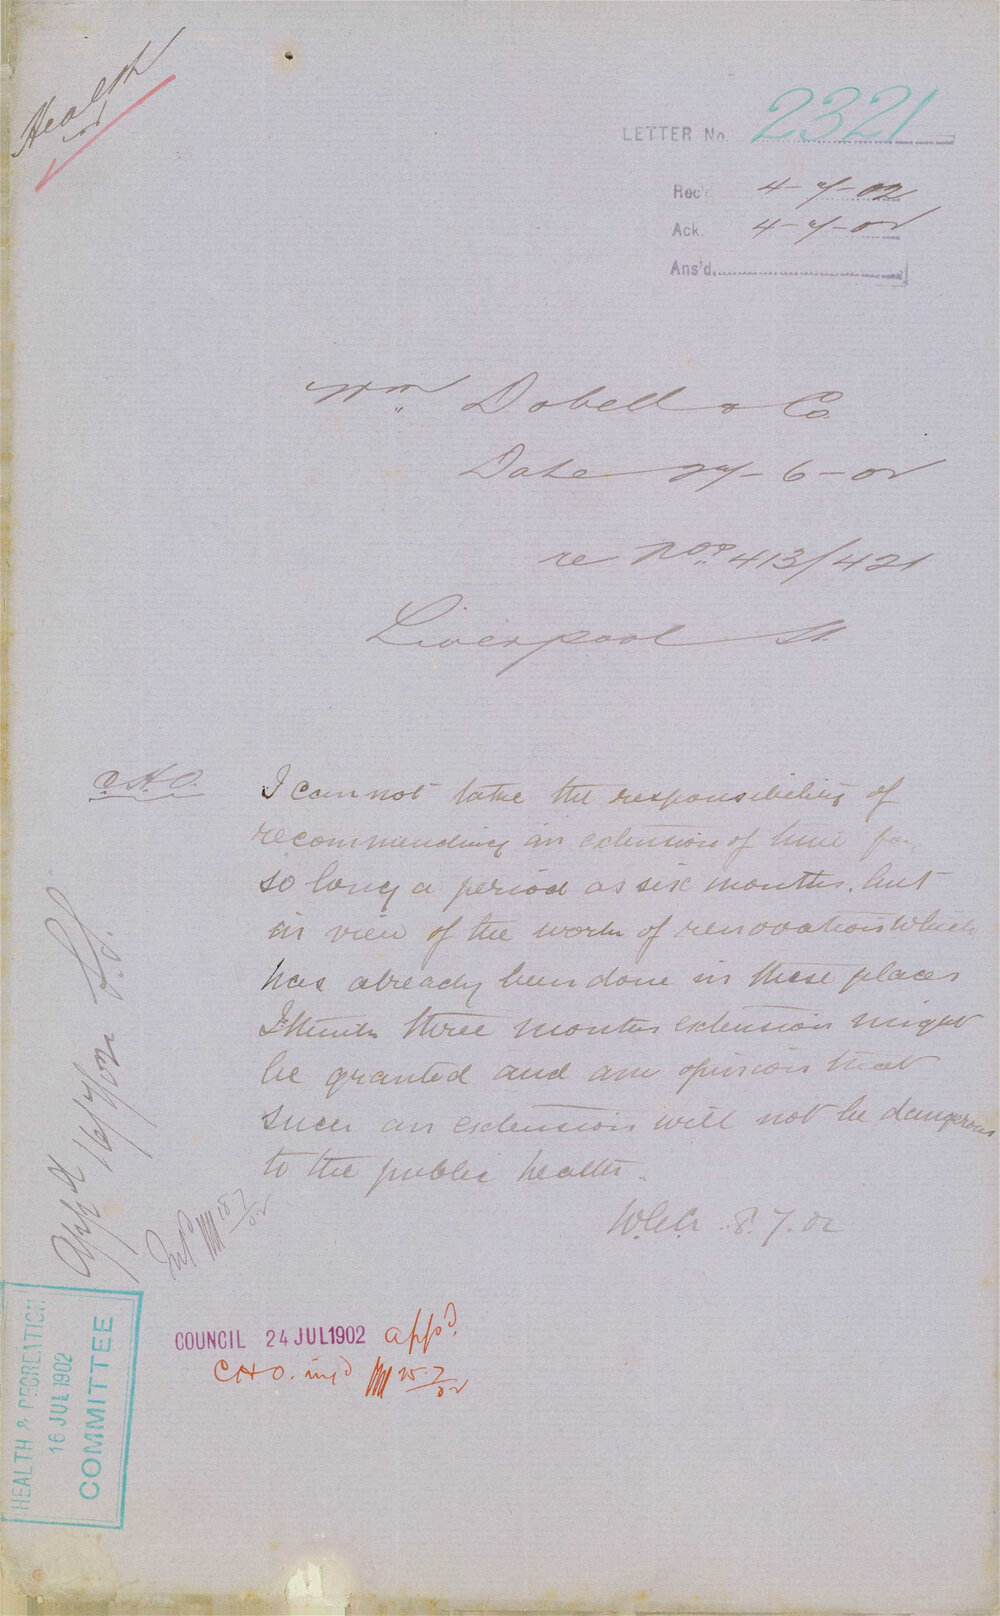 Health
LETTER No. 2321
Rec'd 4-7-02
Ack. 4-7-02
Ans'd
Wm Dobell & Co.
Date 27-6-02
re Nos. 413/421
Liverpool St.
C.H.O.
I cannot take the responsibility of
recommending an extension of time for
so long a period as six months, but
in view of the work of renovation which
has already been done in these places
I think three months extension might
be granted and am opinion that
such an extension will not be dangerous
to the public health.
8.7.02
App'd 16/7/02
15.7/02
HEALTH & RECREATION
16 JUL 1902
COMMITTEE
COUNCIL 24 JUL 1902 app'd.
C.H.O. inf'd 25.7/02